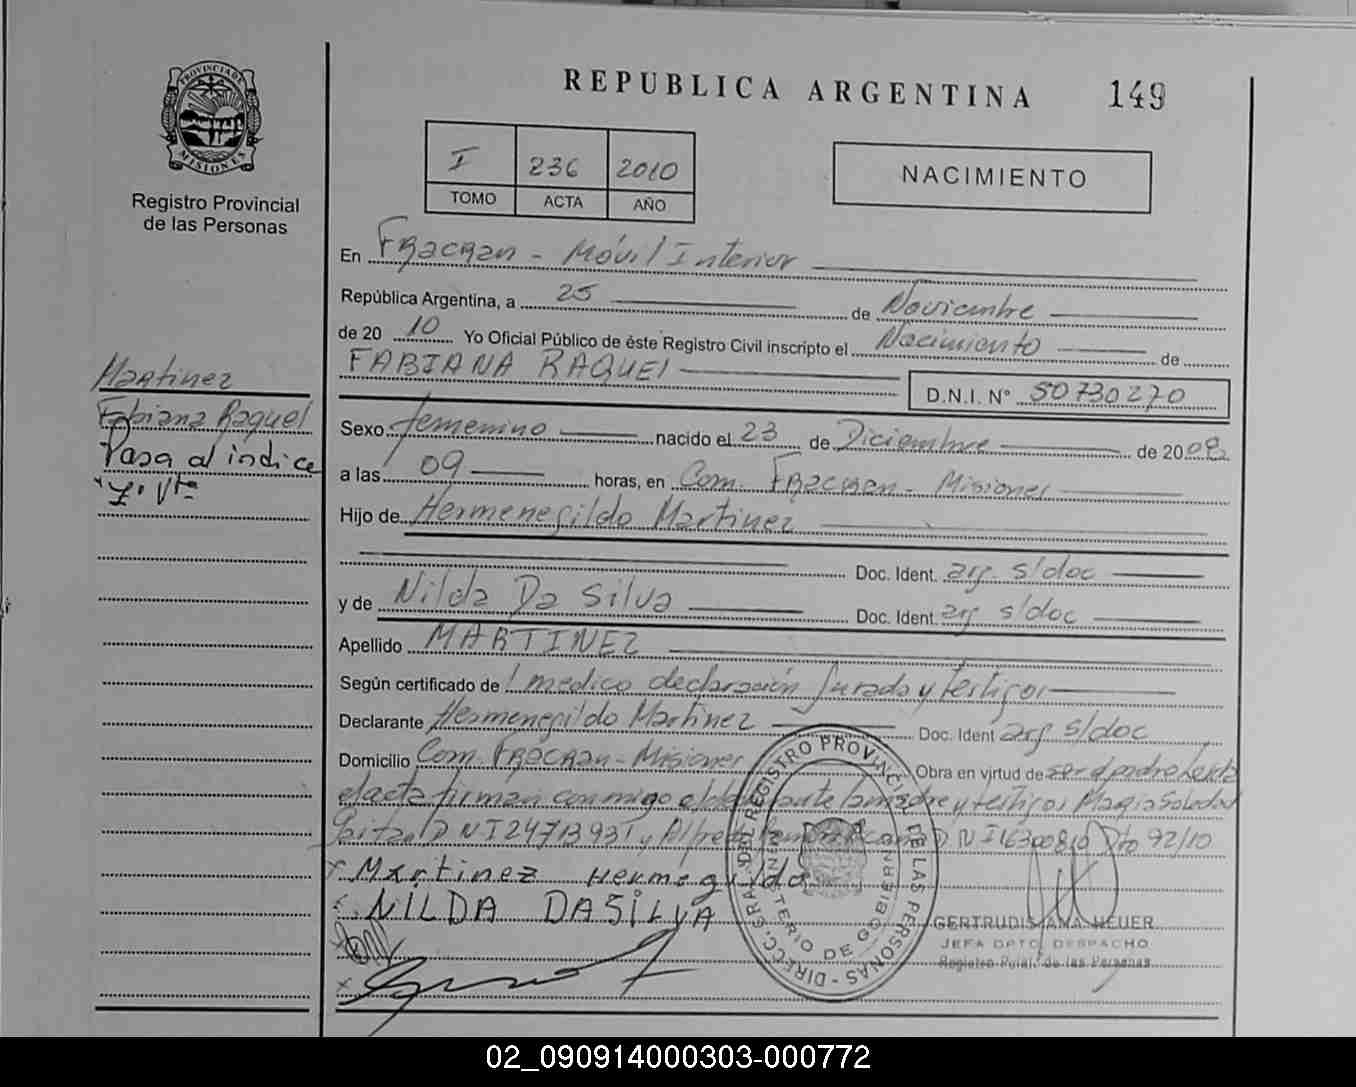 REPUBLICA ARGENTINA 149
PROVINCIA DE MISIONES
Registro Provincial
de las Personas
I 236 2010
TOMO ACTA AÑO
NACIMIENTO
En Fracran - Móvil Interior
República Argentina, a 25 de Noviembre
de 20 10 Yo Oficial Público de éste Registro Civil inscripto el Nacimiento de
FABIANA RAQUEL
D.N.I. Nº 50730270
Martinez
Fabiana Raquel
Pasa al indice
"Z" Vta
Sexo femenino nacido el 23 de Diciembre de 20 09
a las 09 horas, en Com. Fracran - Misiones
Hijo de Hermenegildo Martinez
Doc. Ident. arg. s/doc
y de Nilda Da Silva Doc. Ident. arg s/doc
Apellido MARTINEZ
Según certificado de / medico declaración Jurada y testigos
Declarante Hermenegildo Martinez Doc. Ident arg s/doc
Domicilio Com. Fracran - Misiones Obra en virtud de ser el padre Leida
el acta firman conmigo el la madre y testigos Maria Soledad
DNI 24713931 y Alfredo DNI 16300810 Dto 92/10
x Martinez Hermegildo
NILDA DASILVA
DIRECC. GRAL. DEL REGISTRO PROVINCIAL DE LAS PERSONAS -
MINISTERIO DE GOBIERNO
GERTRUDIS ANA HEUER
JEFA DPTO. DESPACHO
Registro Pcial. de las Personas
02_090914000303-000772